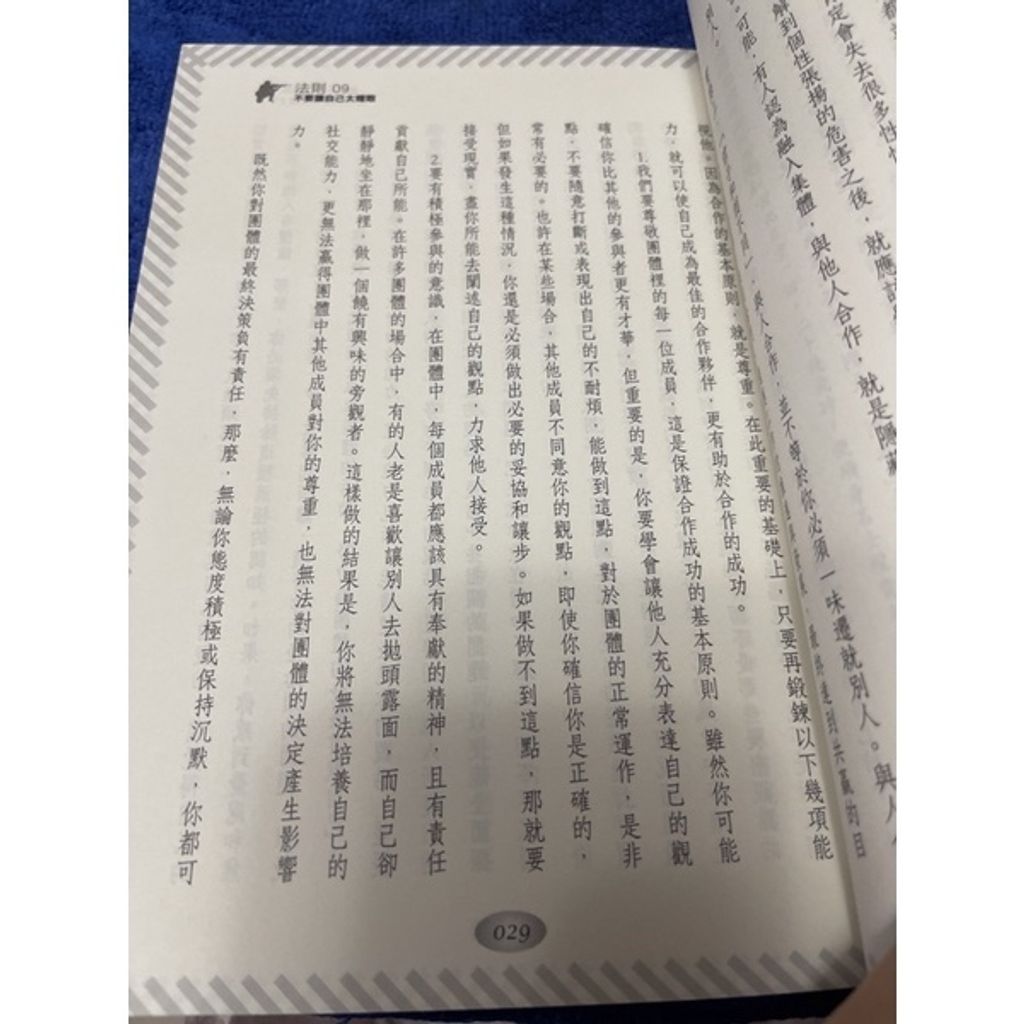 定會失去很多
解到個性張揚的危害之後，就應
可能，有人認為融入集體，與他人合作，就是隱藏
與人合作，並不等於你必須一味遷就別人。與人
最終達到共贏的目
法則 09
現他。因為合作的基本原則，就是尊重。在此重要的基礎上，只要再鍛鍊以下幾項能
力，就可以使自己成為最佳的合作夥伴，更有助於合作的成功。
1.我們要尊敬團體裡的每一位成員，這是保證合作成功的基本原則。雖然你可能
確信你比其他的參與者更有才華，但重要的是，你要學會讓他人充分表達自己的觀
點，不要隨意打斷或表現出自己的不耐煩，能做到這點，對於團體的正常運作，是非
常有必要的。也許在某些場合，其他成員不同意你的觀點，即使你確信你是正確的，
但如果發生這種情況，你還是必須做出必要的妥協和讓步。如果做不到這點，那就要
接受現實，盡你所能去闡述自己的觀點，力求他人接受。
2.要有積極參與的意識，在團體中，每個成員都應該具有奉獻的精神，且有責任
貢獻自己所能。在許多團體的場合中，有的人老是喜歡讓別人去拋頭露面，而自己卻
靜靜地坐在那裡，做一個饒有興味的旁觀者。這樣做的結果是，你將無法培養自己的
社交能力，更無法贏得團體中其他成員對你的尊重，也無法對團體的決定產生影響
力。
既然你對團體的最終決策負有責任，那麼，無論你態度積極或保持沉默，你都可
029